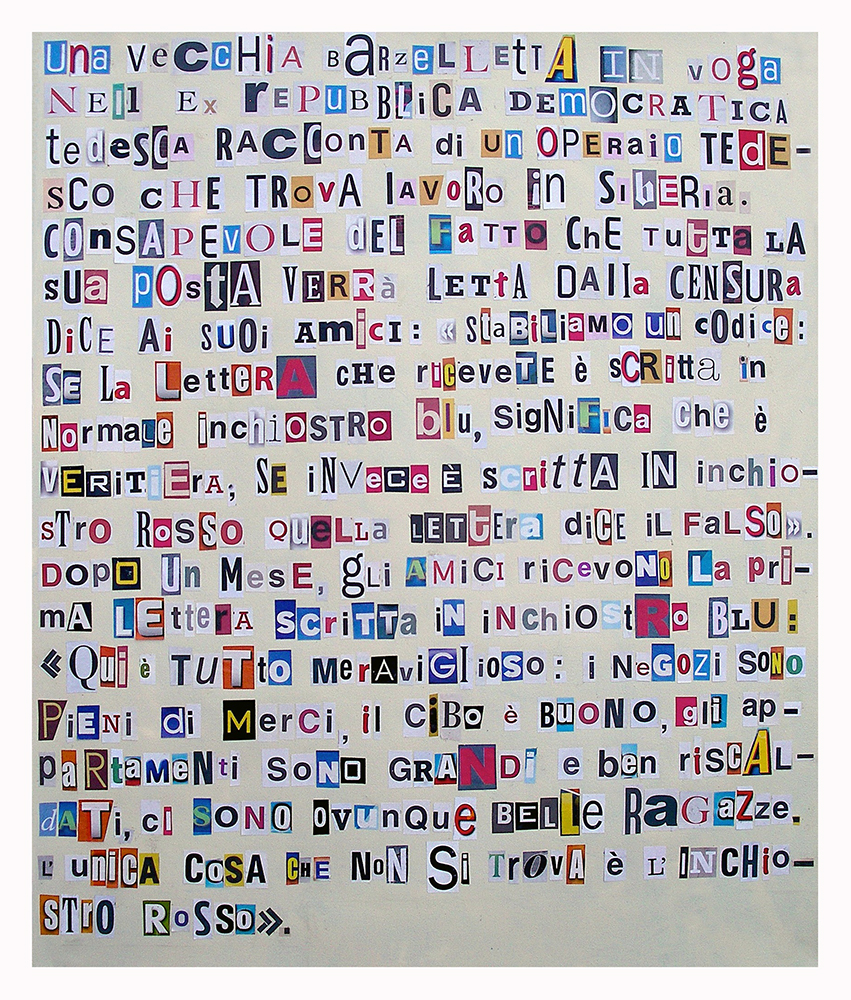 una veccHia BarzelLettA IN voga
Nell Ex rePUBBliCA DEmOCRATICA
tedesCA RACConTA di un OPERaio TEdE-
sCO cHE TROvA lavoRo in SibERia.
COnSAPEVOLE dEL FaTTO ChE TuTTa LA
sua pOstA VERRà LETtA DAlla CENSURa
DiCE Ai suoi AmiCI: «StaBiLiAMO un cOdice:
SE La LettERA CHE riceveTE è sCRitta in
NormaLE inchiOSTRO blu, SigNiFiCa che è
VERITiEra; SE iNVeceÈ scrittA IN inchio-
sTro RosSo QUeLLa LETTEra diCE iL FaLSO».
DOpO Un MesE, gLi AMICI ricevoNO La pri-
mA LEtterA scriTTa iN iNchiOStRo BLU:
«Qui è TUTto MerAviGlioSo: i NeGOZi SONO
PiENi di MerCi, il CiBO è BUONO, gli ap-
paRtaMeNti SoNO GRANDi e bEn risCAL-
dATi, ci SONO OvUnQue BELlE RaGaZze.
L'uniCA COSA CHE NoN Si TrOVA è L'INCHio-
STrO RoSSo».